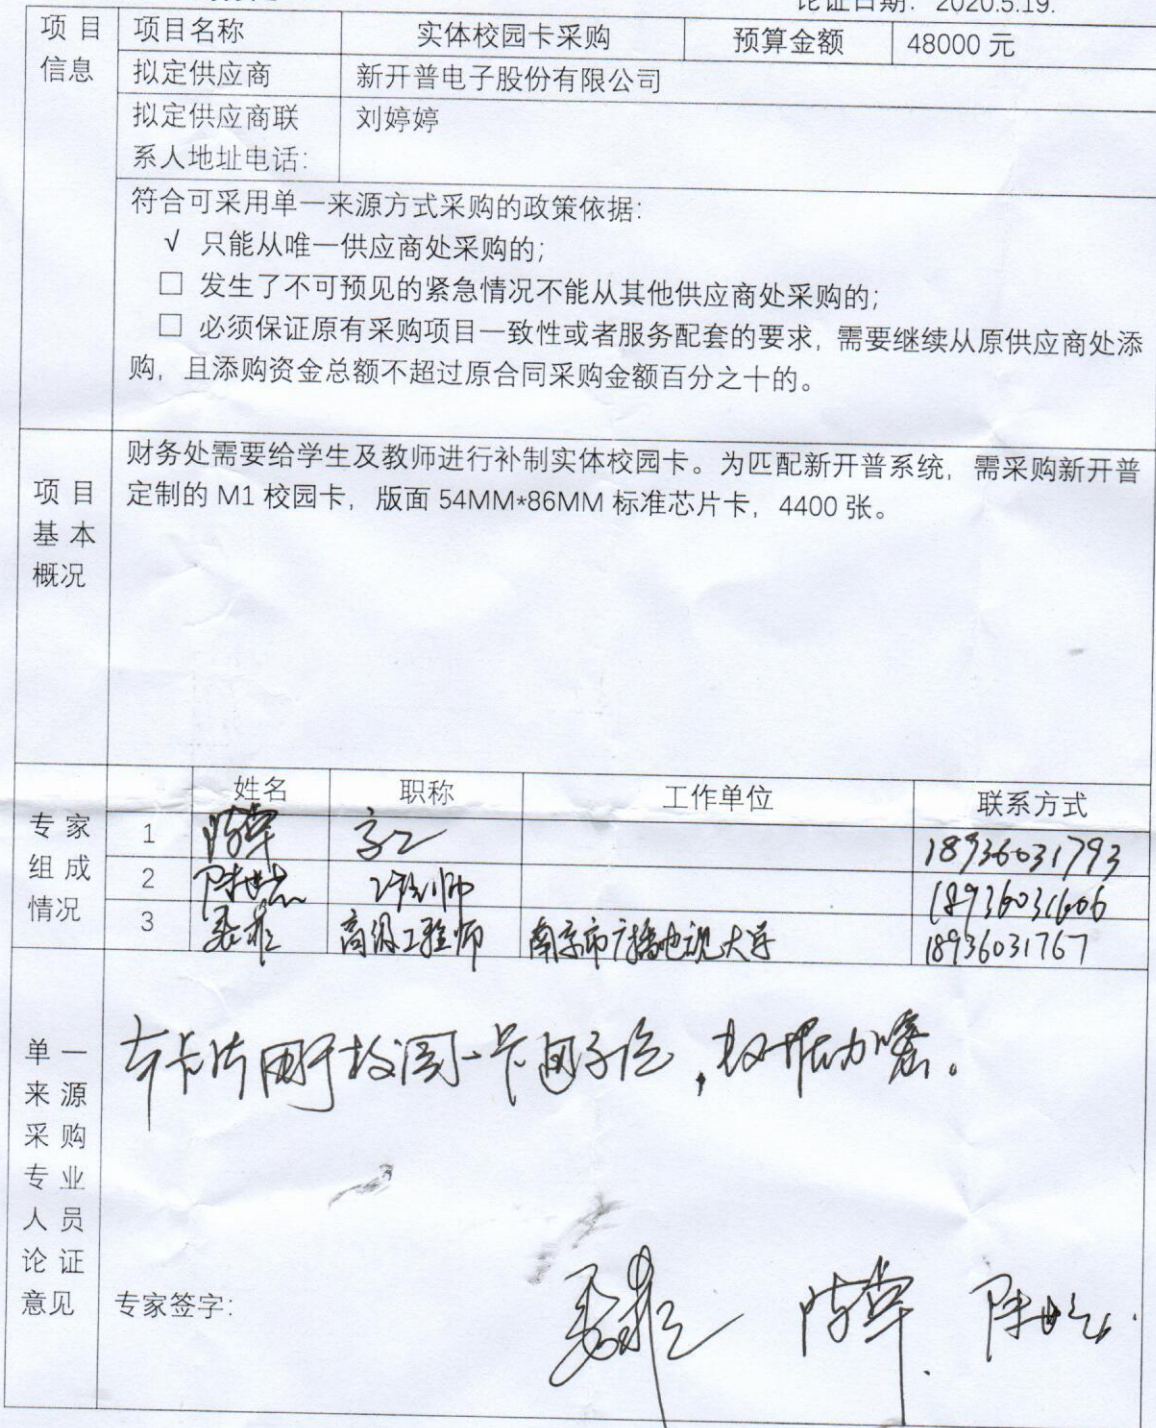 论证日期：2020.5.19.
项目信息 项目名称 实体校园卡采购 预算金额 48000 元
拟定供应商 新开普电子股份有限公司
拟定供应商联 刘婷婷
系人地址电话：
符合可采用单一来源方式采购的政策依据：
√ 只能从唯一供应商处采购的；
□ 发生了不可预见的紧急情况不能从其他供应商处采购的；
□ 必须保证原有采购项目一致性或者服务配套的要求，需要继续从原供应商处添
购，且添购资金总额不超过原合同采购金额百分之十的。
项目基本概况
财务处需要给学生及教师进行补制实体校园卡。为匹配新开普系统，需采购新开普
定制的 M1 校园卡，版面 54MM*86MM 标准芯片卡，4400 张。
专家组成情况
姓名 职称 工作单位 联系方式
1 高工 18936031793
2 工程师 18936031606
3 高级工程师 南京市广播电视大学 18936031767
单一来源采购专业人员论证意见
本卡片用于校园一卡通子系，数据加密。
专家签字：